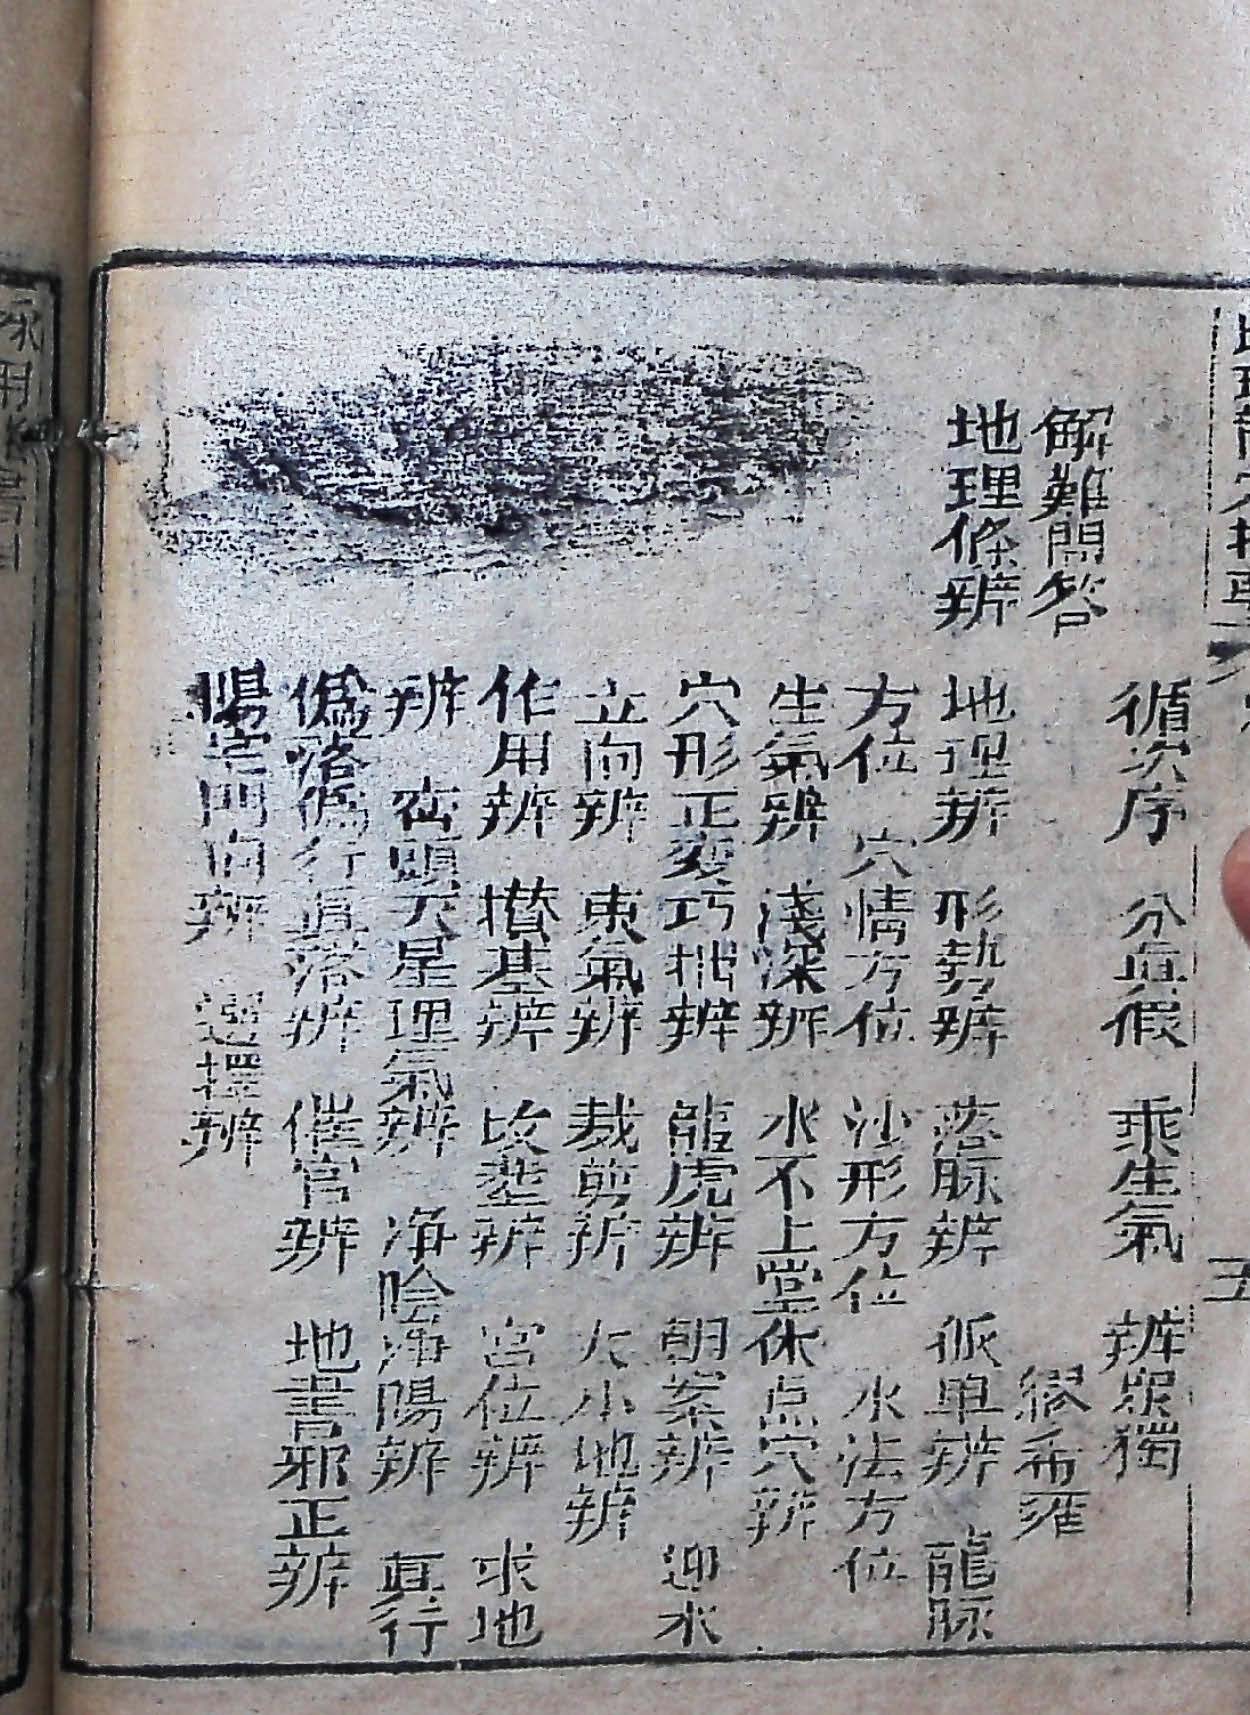 循次序 分真假 乘生氣 辨眾獨
解難問答 繆希雍
地理條辨 地理辨 形勢辨 落脉辨 派單辨 龍脉
方位 穴情方位 沙形方位 水法方位
生氣辨 淺深辨 水不上堂休点穴辨
穴形正变巧拙辨 龍虎辨 朝案辨 迎水
立向辨 東氣辨 裁剪辨 大小地辨
作用辨 塟基辨 改塟辨 宮位辨 求地
辨 巒頭天星理氣辨 净陰净陽辨 真行
偽落偽行真落辨 催官辨 地書邪正辨
陽宅門向辨 選擇辨
五